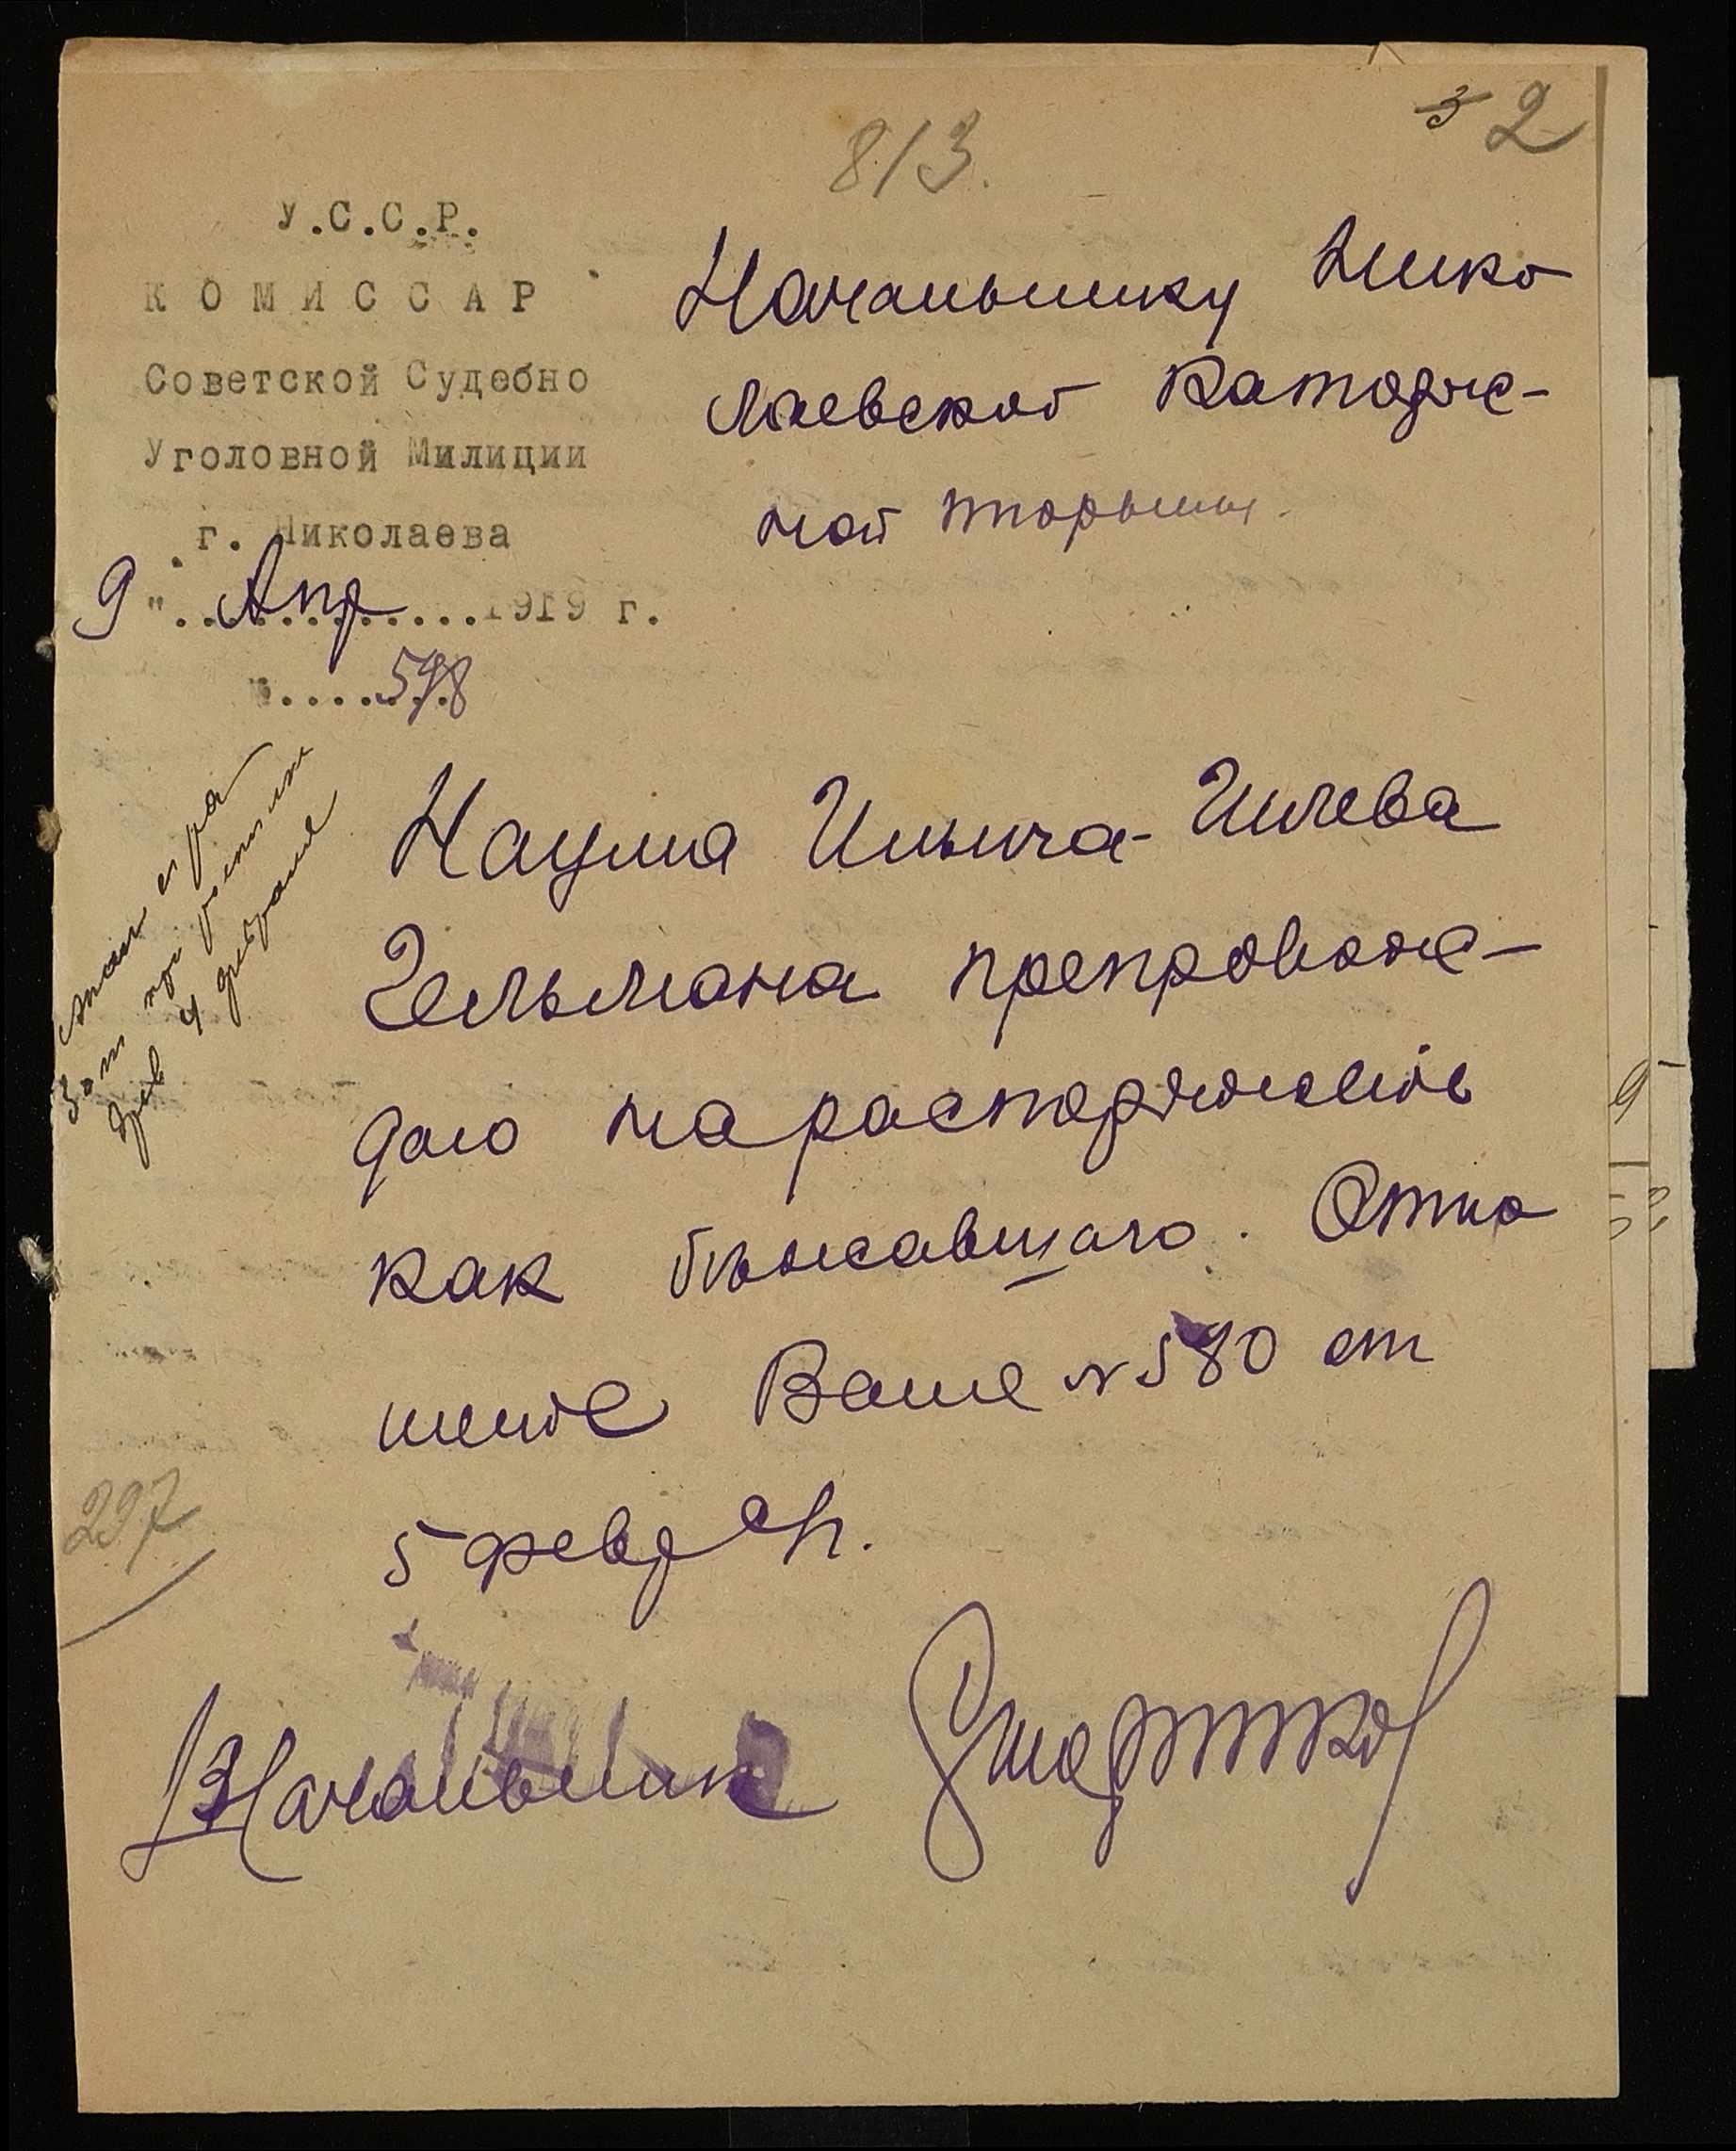 3 2
813.
У.С.С.Р.
КОМИССАР
Советской Судебно
Уголовной Милиции
г. Николаева
9 " Апр 1919 г.
598
Начальнику Нико
лаевской Каторж-
ной тюрьмы.
Наума Ильича-Гилева
Гельмана препровож-
даю на распоряжение
как бѣжавшаго. Отно
шеніе Ваше № 580 от
5 февр с/г.
297
Начальник